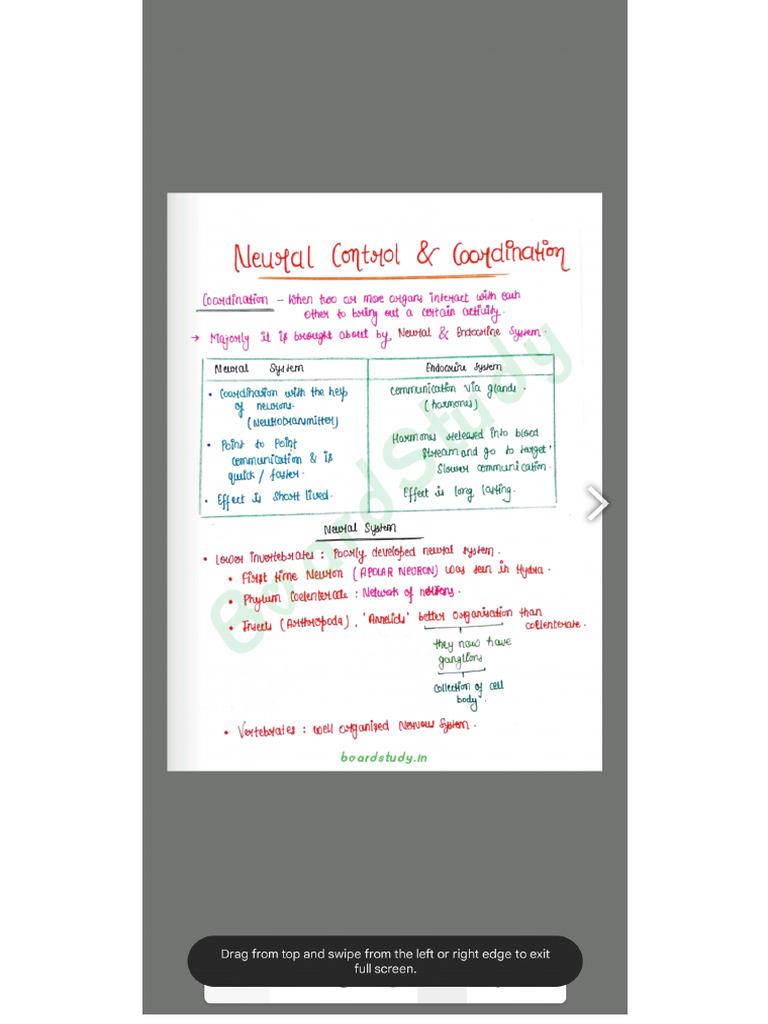 Neural Control & Coordination
Coordination – When two or more organs interact with each
other to bring out a certain activity.
→ Majorly it is brought about by Neural & Endocrine System.
Neural System
• Coordination with the help
of neurons.
(Neurotransmitter)
• Point to Point
communication & is
quick / faster.
• Effect is Short lived.
Endocrine System
Communication via glands.
(hormones)
Hormones released into blood
stream and go to target'
Slower communication.
Effect is long lasting.
Neural System
• Lower invertebrates : Poorly developed neural system.
• First time Neuron (APOLAR NEURON) was seen in Hydra.
• Phylum Coelenterate : Network of
• Insects (Arthropoda), 'Annelids' better organisation than
coelenterate.
they now have
ganglions
collection of cell
body".
• Vertebrates : well organized Nervous System.
boardstudy.in
BoardStudy
Drag from top and swipe from the left or right edge to exit
full screen.